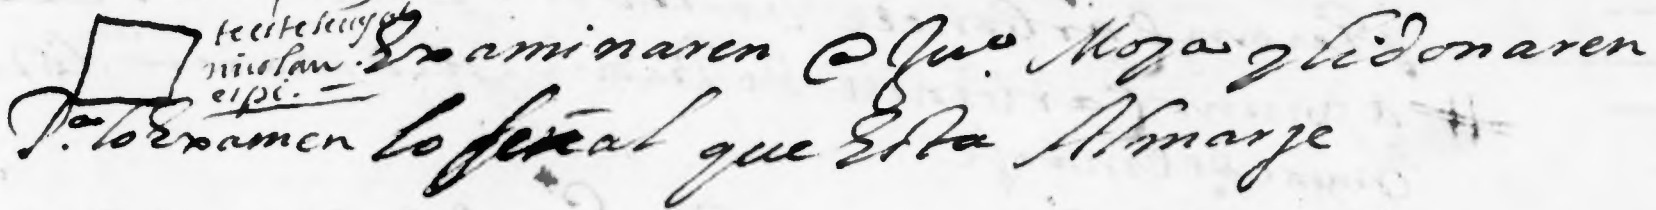 nicolau
eipc.
Examinaren @ Juº. Moya y lidonaren
Pª. lo Examen lo señal que Esta Almarje